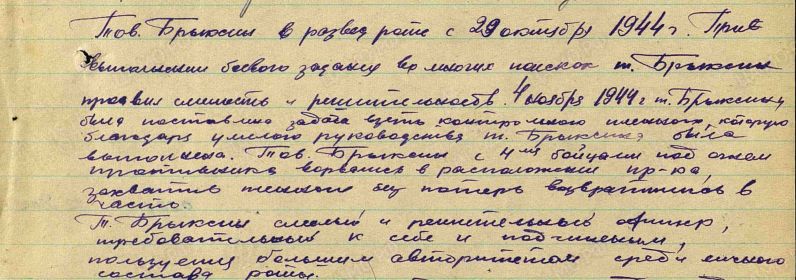 Тов. Брыксин в развед роте с 29 октября 1944 г. При
выполнении боевого задания во многих поисках т. Брыксин
проявил смелость и решительность. 4 ноября 1944 г т. Брыксину
была поставлена задача взять контрольного пленного, которую
благодаря умелого руководства т. Брыксина была
выполнена. Тов. Брыксин с 4мя бойцами под огнем
противника ворвались в расположение пр-ка,
захватив пленного без потерь возвратились в
часть.
Т. Брыксин смелый и решительный офицер,
требовательный к себе и подчиненным,
пользуется большим авторитетом среди личного
состава роты.